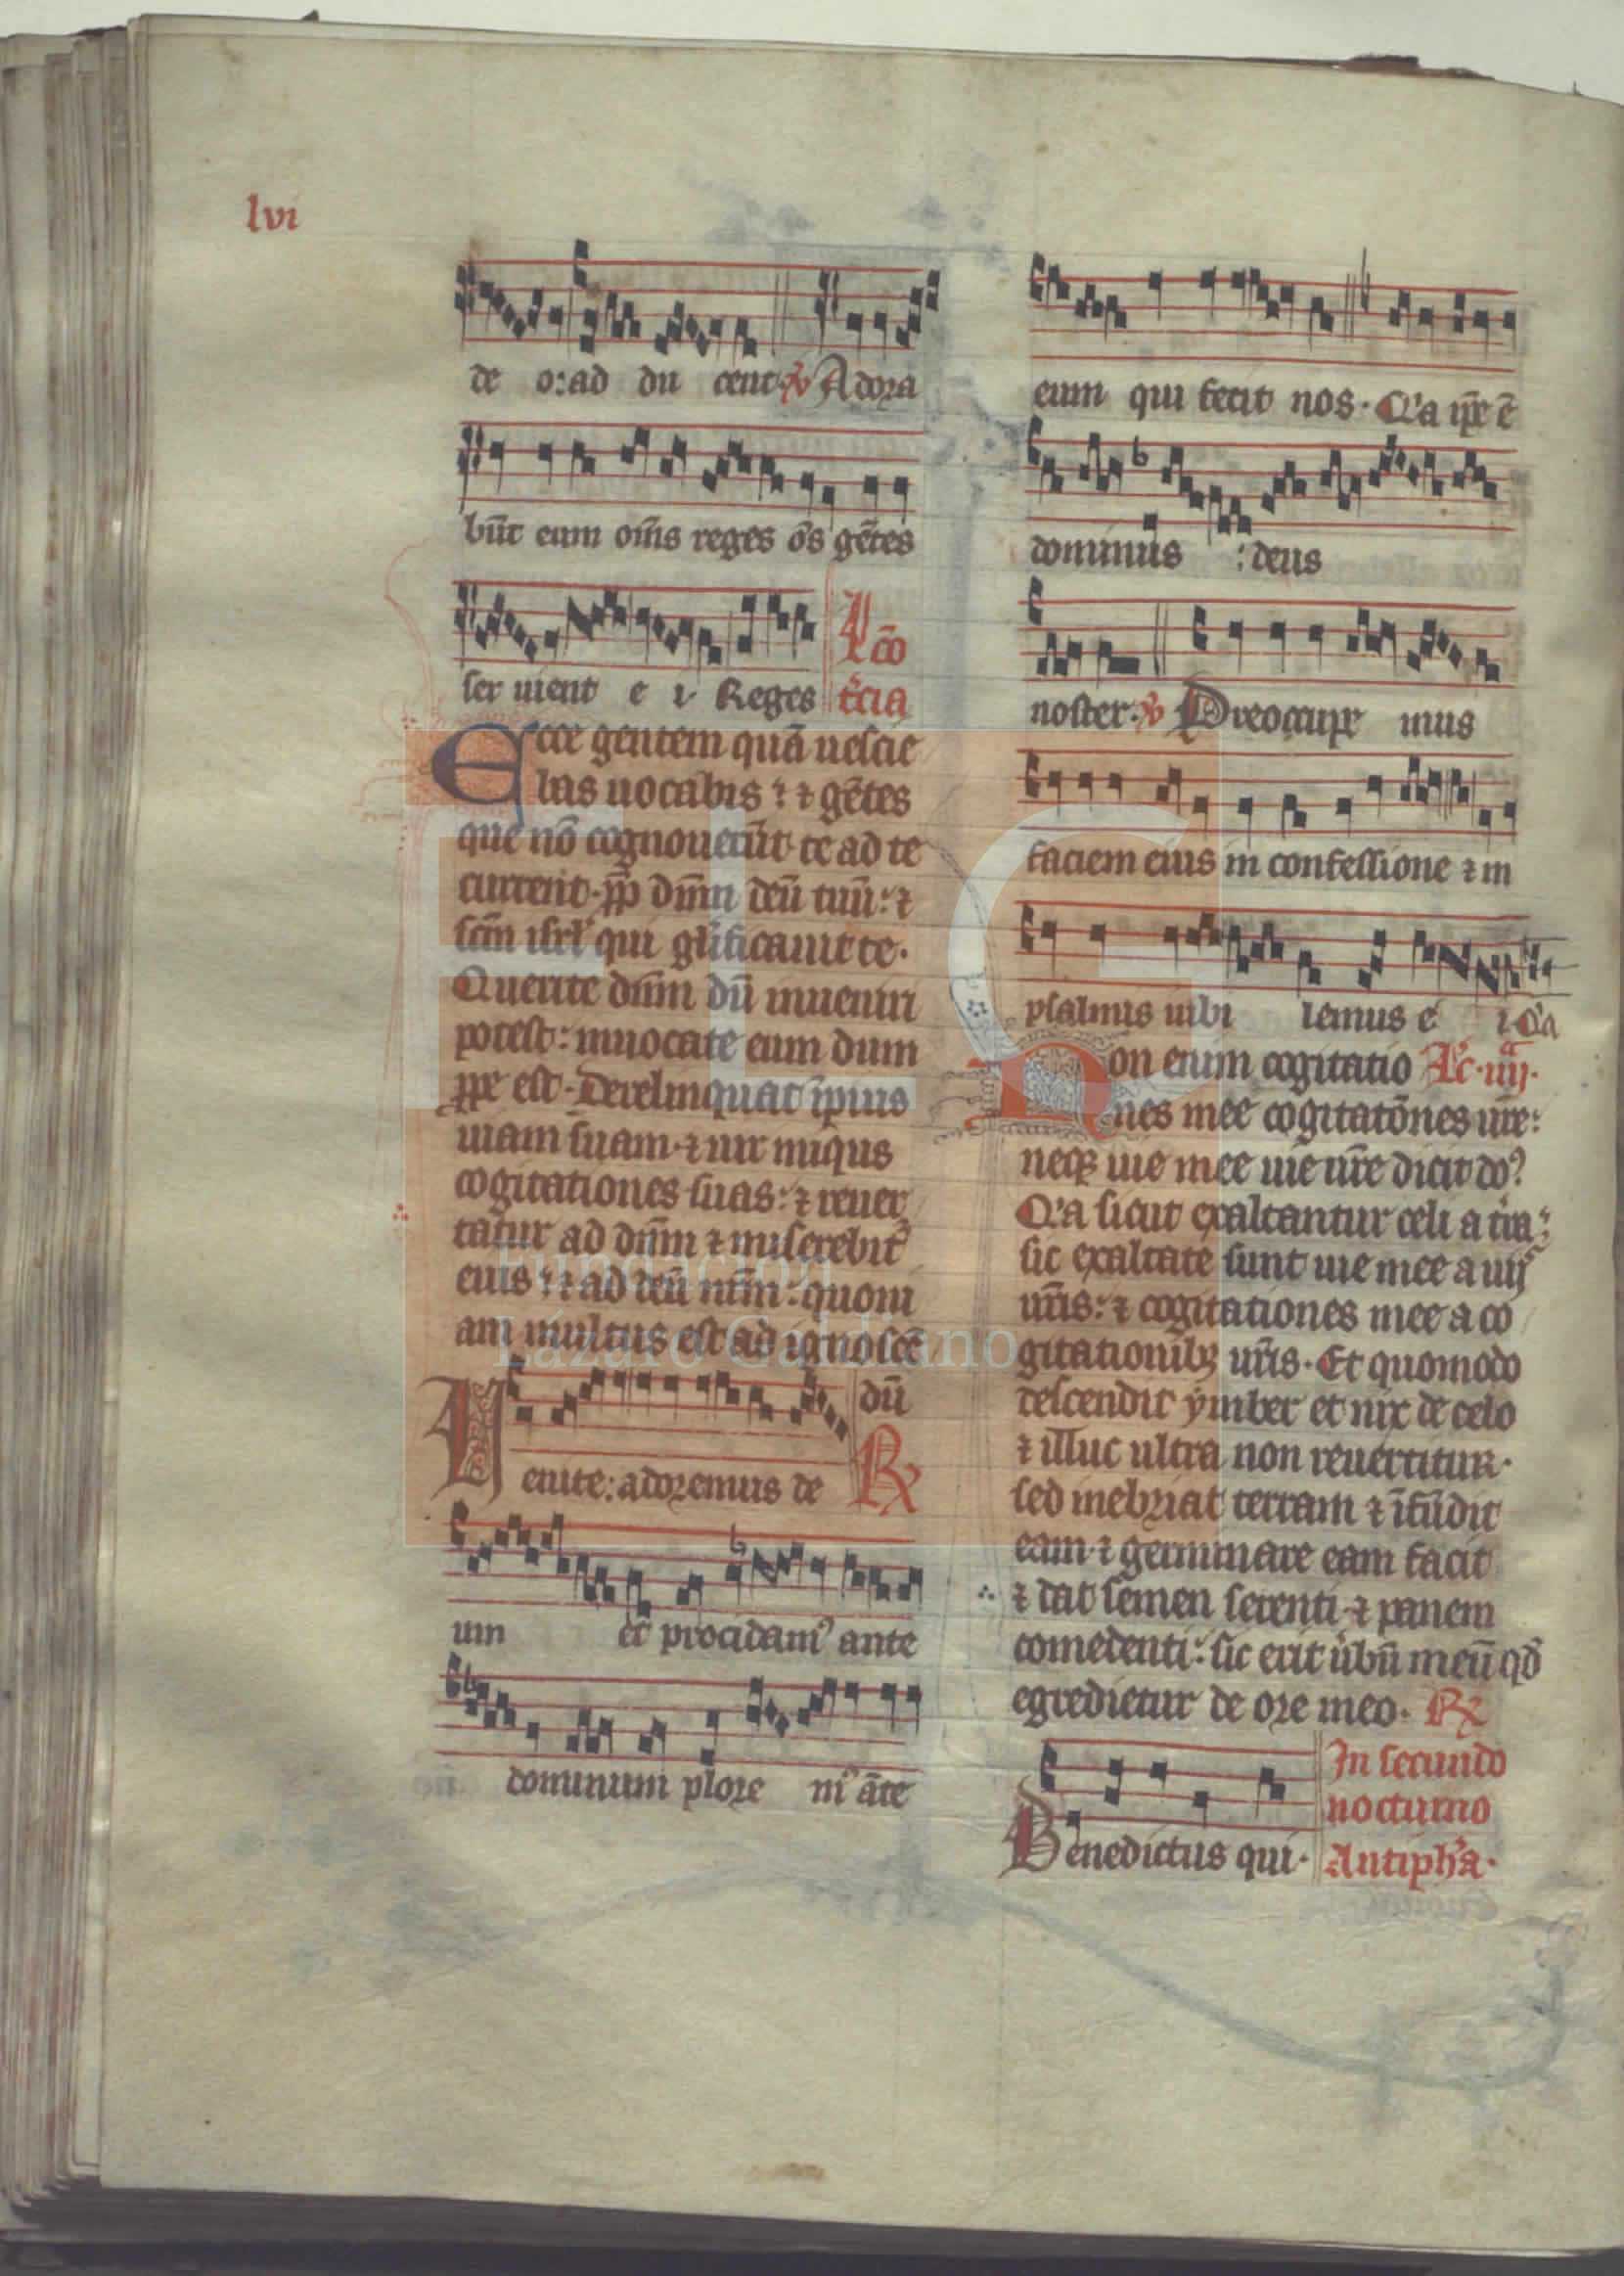 lvi
de o:ad du cent ℣ Adora
bu̅t eum om̅s reges o̅s ge̅tes
ser uient e i Reges
L̅co
t̅cia
Ecce gentem qua̅ nescie
bas uocabis: ⁊ ge̅tes
que no̅ cognoueru̅t te ad te
current. ꝓp̅ dn̅m deu̅ tuu̅: ⁊
sc̅m isrl̅ qui gl̅ificauit te.
Querite dn̅m du̅ inueniri
potest: inuocate eum dum
ꝓpe est. Derelinquat ip̅ius
uiam suam. ⁊ uir iniqus
cogitationes suas: ⁊ reuer
tatur ad dn̅m ⁊ miserebit᷑
eius: ⁊ ad deu̅ nr̅m: quoni
am multus est ad ignosce̅
du̅
Venite: adoremus de ℟
um et procidamꝰ ante
dominum plore mꝰ a̅te
eum qui fecit nos. Q'a ip̅e e̅
dominus : deus
noster. ℣ Preocupe mus
faciem eius in confessione ⁊ in
psalmis iubi lemus e i. Q'a
Non enim cogitatio L̅c. iiij.
nes mee cogitato̅nes ur̅e:
neqꝫ uie mee uie ur̅e dicit do᷑
Q'a sicut exaltantur celi a t̅ra:
sic exaltate sunt uie mee a uijs
ur̅is: ⁊ cogitationes mee a co
gitationibꝫ ur̅is. Et quomodo
descendit ymber et nix de celo
⁊ illuc ultra non reuertitur.
sed inebriat terram ⁊ i̅fu̅dit
eam. ⁊ germinare eam facit
⁊ dat semen serenti. ⁊ panem
comedenti: sic erit u̅bu̅ meu̅ qd̅
egredietur de ore meo. ℟
Benedictus qui.
In secundo
nocturno
Antiph'a.
FLG
Lázaro Galdiano